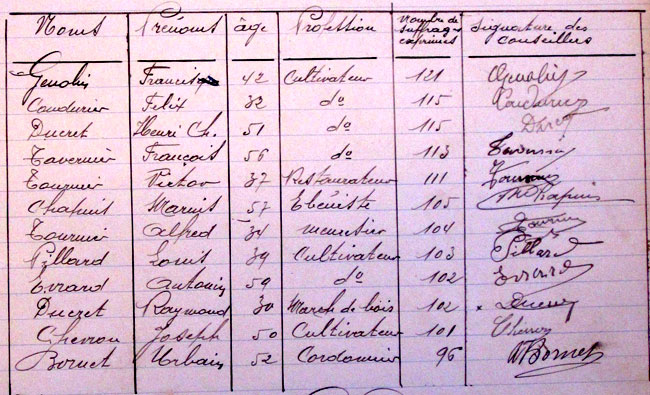 Noms Prénoms âge Profession Nombre de suffrages exprimés Signature des conseillers
Genolin Francis 42 Cultivateur 121 Genolin
Coudurier Felix 32 do 115 Coudurier
Ducret Henri Ch. 51 do 115 Ducret
Tavernier François 56 do 113 Tavernier
Tournier Victor 37 Restaurateur 111 Tournier
Chapuis Marius 57 Ebéniste 105 Chapuis
Tournier Alfred 34 menuisier 104 Tournier
Pillard Louis 39 Cultivateur 103 Pillard
Evrard Antonin 59 do 102 Evrard
Ducret Raymond 30 March de bois 102 Ducret
Chevron Joseph 50 Cultivateur 101 Chevron
Bornet Urbain 52 Cordonnier 96 Bornet